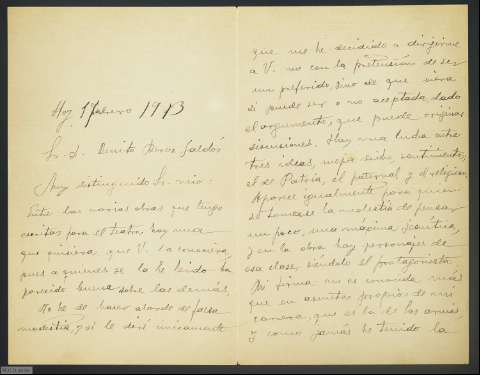 Hoy 1 Febrero 1913
Sr. D. Benito Perez Galdós
Muy distinguido Sr. mio:
Entre las varias obras que tengo
escritas para el teatro, hay una
que quisiera que V. la conociera,
pues a quienes se la he leido ha
parecido buena sobre las demás.
No he de hacer alarde de falsa
modestia, y si le diré unicamente
que me he decidido a dirigirme
a V. no con la pretensión de ser
un preferido, sino de que viera
si puede ser o no aceptada, dado
el argumento, que puede originar
discusiones. Hay una lucha entre
tres ideas, mejor dicho, sentimientos,
el de Patria, el paternal y el religioso.
Aparece igualmente para quien
se tomase la molestia de pensar
un poco, una máxima
y en la obra hay personajes de
esa clase, siendolo el protagonista
Mi firma no es conocida más
que en asuntos propios de mi
carrera, que es la de las armas
y como jamás he tenido la